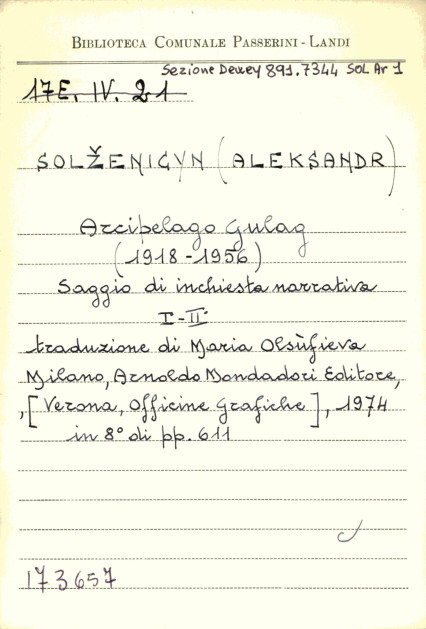 BIBLIOTECA COMUNALE PASSERINI - LANDI
Sezione Dewey 891.7344 SOL Ar 1
17E. IV. 21
SOLŽENICYN (ALEKSANDR)
Arcipelago Gulag
(1918-1956)
Saggio di inchiesta narrativa
I-II
traduzione di Maria Olsùfieva
Milano, Arnoldo Mondadori Editore,
,[Verona, Officine Grafiche], 1974
in 8° di pp. 611
173657